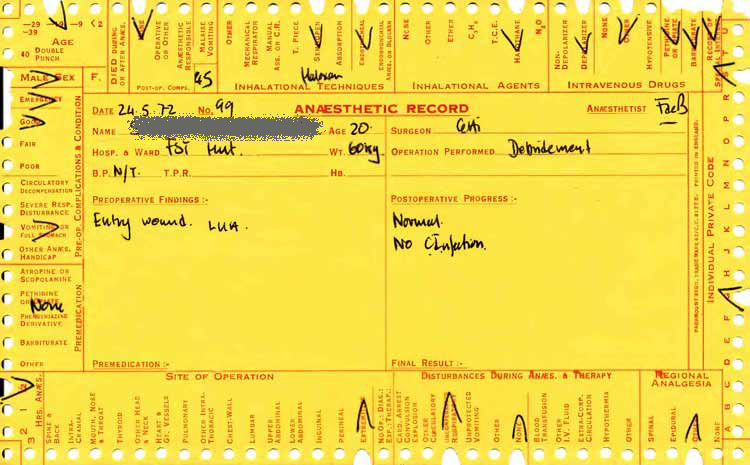 -29 -19 -9 <2
-39
AGE
40 DOUBLE PUNCH
DIED DURING OR AFTER ANÆS.
NONE
OPERATIVE OR OTHER
ANÆSTHETIC RESPONSIBLE
MALAISE VOMITING
OTHER
POST-OP. COMPS.
45
MECHANICAL RESPIRATOR
MANUAL ASS. OR C.R.
T. PIECE
ABSORPTION
ENDOTRACHEAL
Haloxan
INHALATIONAL TECHNIQUES
NONE
OTHER
ETHER
C₃H₆
T.C.E.
HALOTHANE
N₂O
INHALATIONAL AGENTS
NON-DEPOLARIZER
DEPOLARIZER
INTRAVENOUS DRUGS
NONE
OTHER
HYPOTENSIVE
PETHIDINE OR OPIATE
BARBITURATE
RECORD OF SPECIAL INTEREST
MALE SEX F.
DATE 24.5.72 No. 99
ANÆSTHETIC RECORD
ANÆSTHETIST
NAME
AGE 20
SURGEON
HOSP. & WARD FST Hut.
WT. 60kg
OPERATION PERFORMED Debridement
B.P. N/T. T.P.R.
HB.
PREOPERATIVE FINDINGS :-
POSTOPERATIVE PROGRESS :-
Entry wound.
Normal.
No
PREMEDICATION :-
FINAL RESULT :-
EMERGENCY
GOOD
FAIR
POOR
CIRCULATORY DECOMPENSATION
SEVERE RESP. DISTURBANCE
VOMITING OR FULL STOMACH
OTHER ANÆS. HANDICAP
PRE-OP. COMPLICATIONS & CONDITION
ATROPINE OR SCOPOLAMINE
PETHIDINE OR OPIATE
None
PHENOTHIAZINE DERIVATIVE
BARBITURATE
OTHER
PREMEDICATION
INDIVIDUAL PRIVATE CODE
A B C D E F G H J K L M N O P R S T U
PRINTED IN ENGLAND.
3 2 1
HRS. ANÆS.
SITE OF OPERATION
SPINE & BACK
INTRA-CRANIAL
MOUTH, NOSE & THROAT
THYROID
OTHER HEAD & NECK
HEART & GT. VESSELS
PULMONARY
OTHER INTRA-THORACIC
CHEST-WALL
LUMBAR
UPPER ABDOMINAL
LOWER ABDOMINAL
INGUINAL
PERINEAL
DISTURBANCES DURING ANÆS. & THERAPY
CARD. ARREST CONVULSION EXPLOSION
OTHER CIRCULATORY
UNPROTECTED VOMITING
OTHER
NONE
BLOOD TRANSFUSION
OTHER I.V. FLUID
EXTRA-CORP. CIRCULATION
HYPOTHERMIA
OTHER
REGIONAL ANALGESIA
SPINAL
EPIDURAL
OTHER
NONE